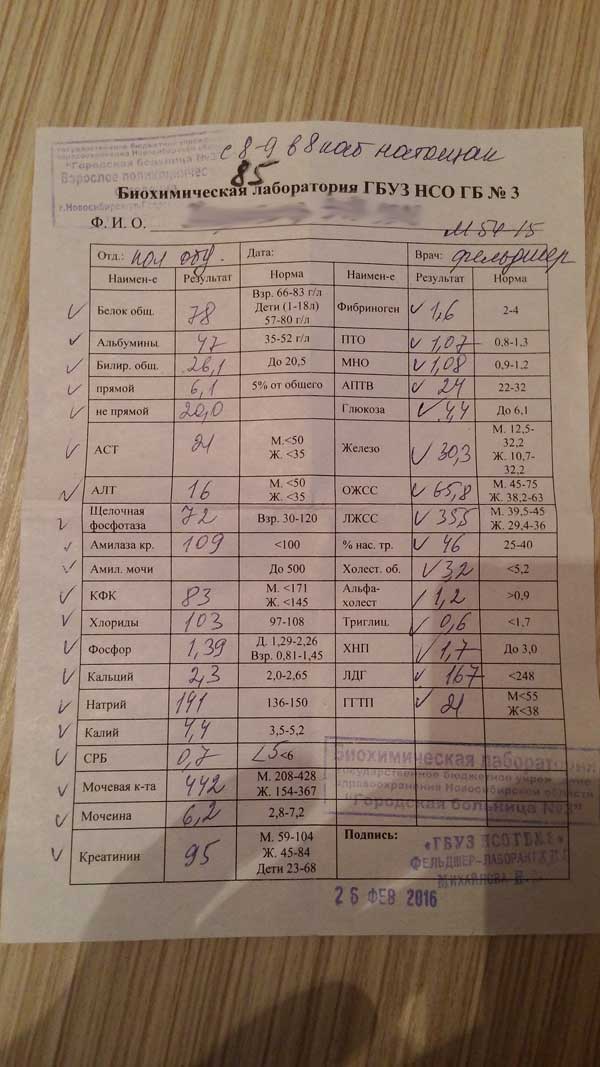 с 8-9 в 8 каб натощак
"Городская больница №3"
Взрослое
85
Биохимическая лаборатория ГБУЗ НСО ГБ № 3
Ф. И. О.
М 54-15
Отд.: Дата: Врач: фельдшер
Наимен-е Результат Норма Наимен-е Результат Норма
Белок общ. 78 Взр. 66-83 г/л Дети (1-18л) 57-80 г/л Фибриноген 1,6 2-4
Альбумины 47 35-52 г/л ПТО 1,07 0,8-1,3
Билир. общ. 26,1 До 20,5 МНО 1,08 0,9-1,2
прямой 6,1 5% от общего АПТВ 24 22-32
не прямой 20,0 Глюкоза 4,4 До 6,1
АСТ 21 М.<50 Ж. <35 Железо 30,3 М. 12,5-32,2 Ж. 10,7-32,2
АЛТ 16 М. <50 Ж. <35 ОЖСС 65,8 М. 45-75 Ж. 38,2-63
Щелочная фосфотаза 72 Взр. 30-120 ЛЖСС 35,5 М. 39,5-45 Ж. 29,4-36
Амилаза кр. 109 <100 % нас. тр. 46 25-40
Амил. мочи До 500 Холест. об. 3,2 <5,2
КФК 83 М. <171 Ж. <145 Альфа-холест 1,2 >0,9
Хлориды 103 97-108 Триглиц. 0,6 <1,7
Фосфор 1,39 Д. 1,29-2,26 Взр. 0,81-1,45 ХНП 1,7 До 3,0
Кальций 2,3 2,0-2,65 ЛДГ 167 <248
Натрий 141 136-150 ГГТП 21 М<55 Ж<38
Калий 4,4 3,5-5,2
СРБ 0,7 <5 <6
Мочевая к-та 442 М. 208-428 Ж. 154-367
Мочеина 6,2 2,8-7,2
Креатинин 95 М. 59-104 Ж. 45-84 Дети 23-68 Подпись:
Биохимическая лаборатория
государственное бюджетное учреж
здравоохранения Новосибирской области
"Городская больница №3"
«ГБУЗ НСО ГБ №3»
ФЕЛЬДШЕР-ЛАБОРАНТ
МИХАЙЛОВА
26 ФЕВ 2016